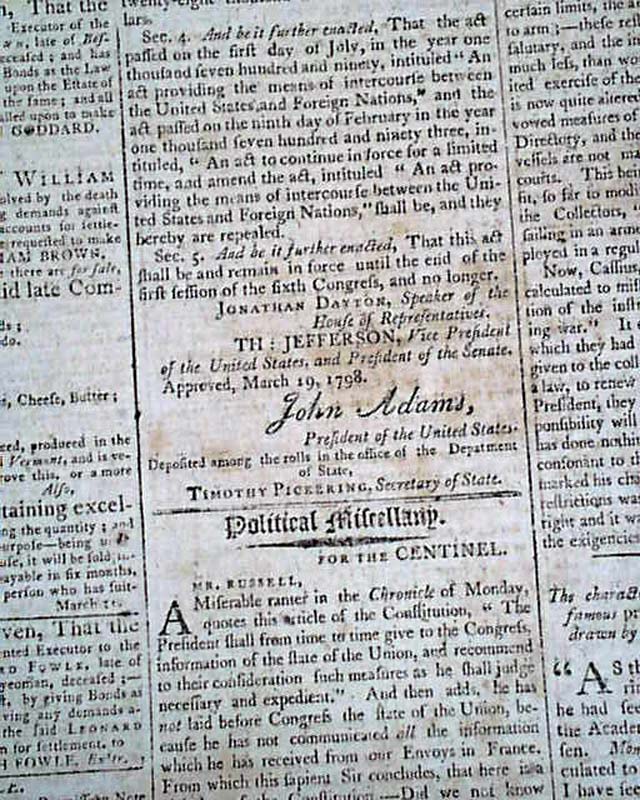 n, That the
Executor of the
, late of
ceased; and has
Bonds as the Law
upon the Estate of
the same; and all
alled upon to make
GODDARD.
WILLIAM
olved by the death
demands against
accounts for settle-
requested to make
AM BROWN.
there are for sale,
id late Com-
ds;
do.
s, Cheese, Butter;
ced, produced in the
Vermont, and is ve-
rove this, or a more
Also,
taining excel-
ng the quantity; and
urpose—being
use, it will be sold
ayable in six months,
person who has suit-
March
ven, That the
nted Executor to the
FOWLE, late of
yeoman, deceased;—
t, by giving Bonds as
ving any demands a-
the said LEONARD
n for settlement, to
H FOWLE, Ex'r.
lars.
Sec. 4. And be it further enacted, That the act
passed on the first day of July, in the year one
thousand seven hundred and ninety, intituled " An
act providing the means of intercourse between
the United States and Foreign Nations," and the
act passed on the ninth day of February in the year
one thousand seven hundred and ninety three, in-
tituled, " An act to continue in force for a limited
time, and amend the act, intituled " An act pro-
viding the means of intercourse between the Uni-
ted States and Foreign Nations," shall be, and they
hereby are repealed.
Sec. 5. And be it further enacted, That this act
shall be and remain in force until the end of the
first session of the sixth Congress, and no longer.
JONATHAN DAYTON, Speaker of the
House of Representatives.
TH: JEFFERSON, Vice President
of the United States, and President of the Senate.
Approved, March 19, 1798.
John Adams,
President of the United States.
Deposited among the rolls in the office of the Department
of State,
TIMOTHY PICKERING, Secretary of State.
Political Miscellany.
FOR THE CENTINEL.
MR. RUSSELL,
A Miserable ranter in the Chronicle of Monday,
quotes this article of the Constitution, " The
President shall from time to time give to the Congress,
information of the state of the Union, and recommend
to their consideration such measures as he shall judge
necessary and expedient." And then adds, he has
not laid before Congress the state of the Union, be-
cause he has not communicated all the information
which he has received from our Envoys in France.
From which this sapient Sir concludes, that here is a
of the Constitution—Did we not know
certain limits, the
to arm;—these
salutary, and the
much less, than
ited exercise of the
is now quite altere
vowed measures of
Directory, and the
vessels are not
courts. This bein
fit, so far to modi
the Collectors,
sailing in an arme
ployed in a regu
Now, Cassius
calculated to
tion of the
ing war." It
which they had
given to the coll
a law, to renew
President, they
ponsibility will
has done nothi
consonant to th
marked his cha
restrictions was
right and it w
the exigencies
The charact
famous
drawn by
" AS th
he had see
the Academ
sen.
culated to
I have